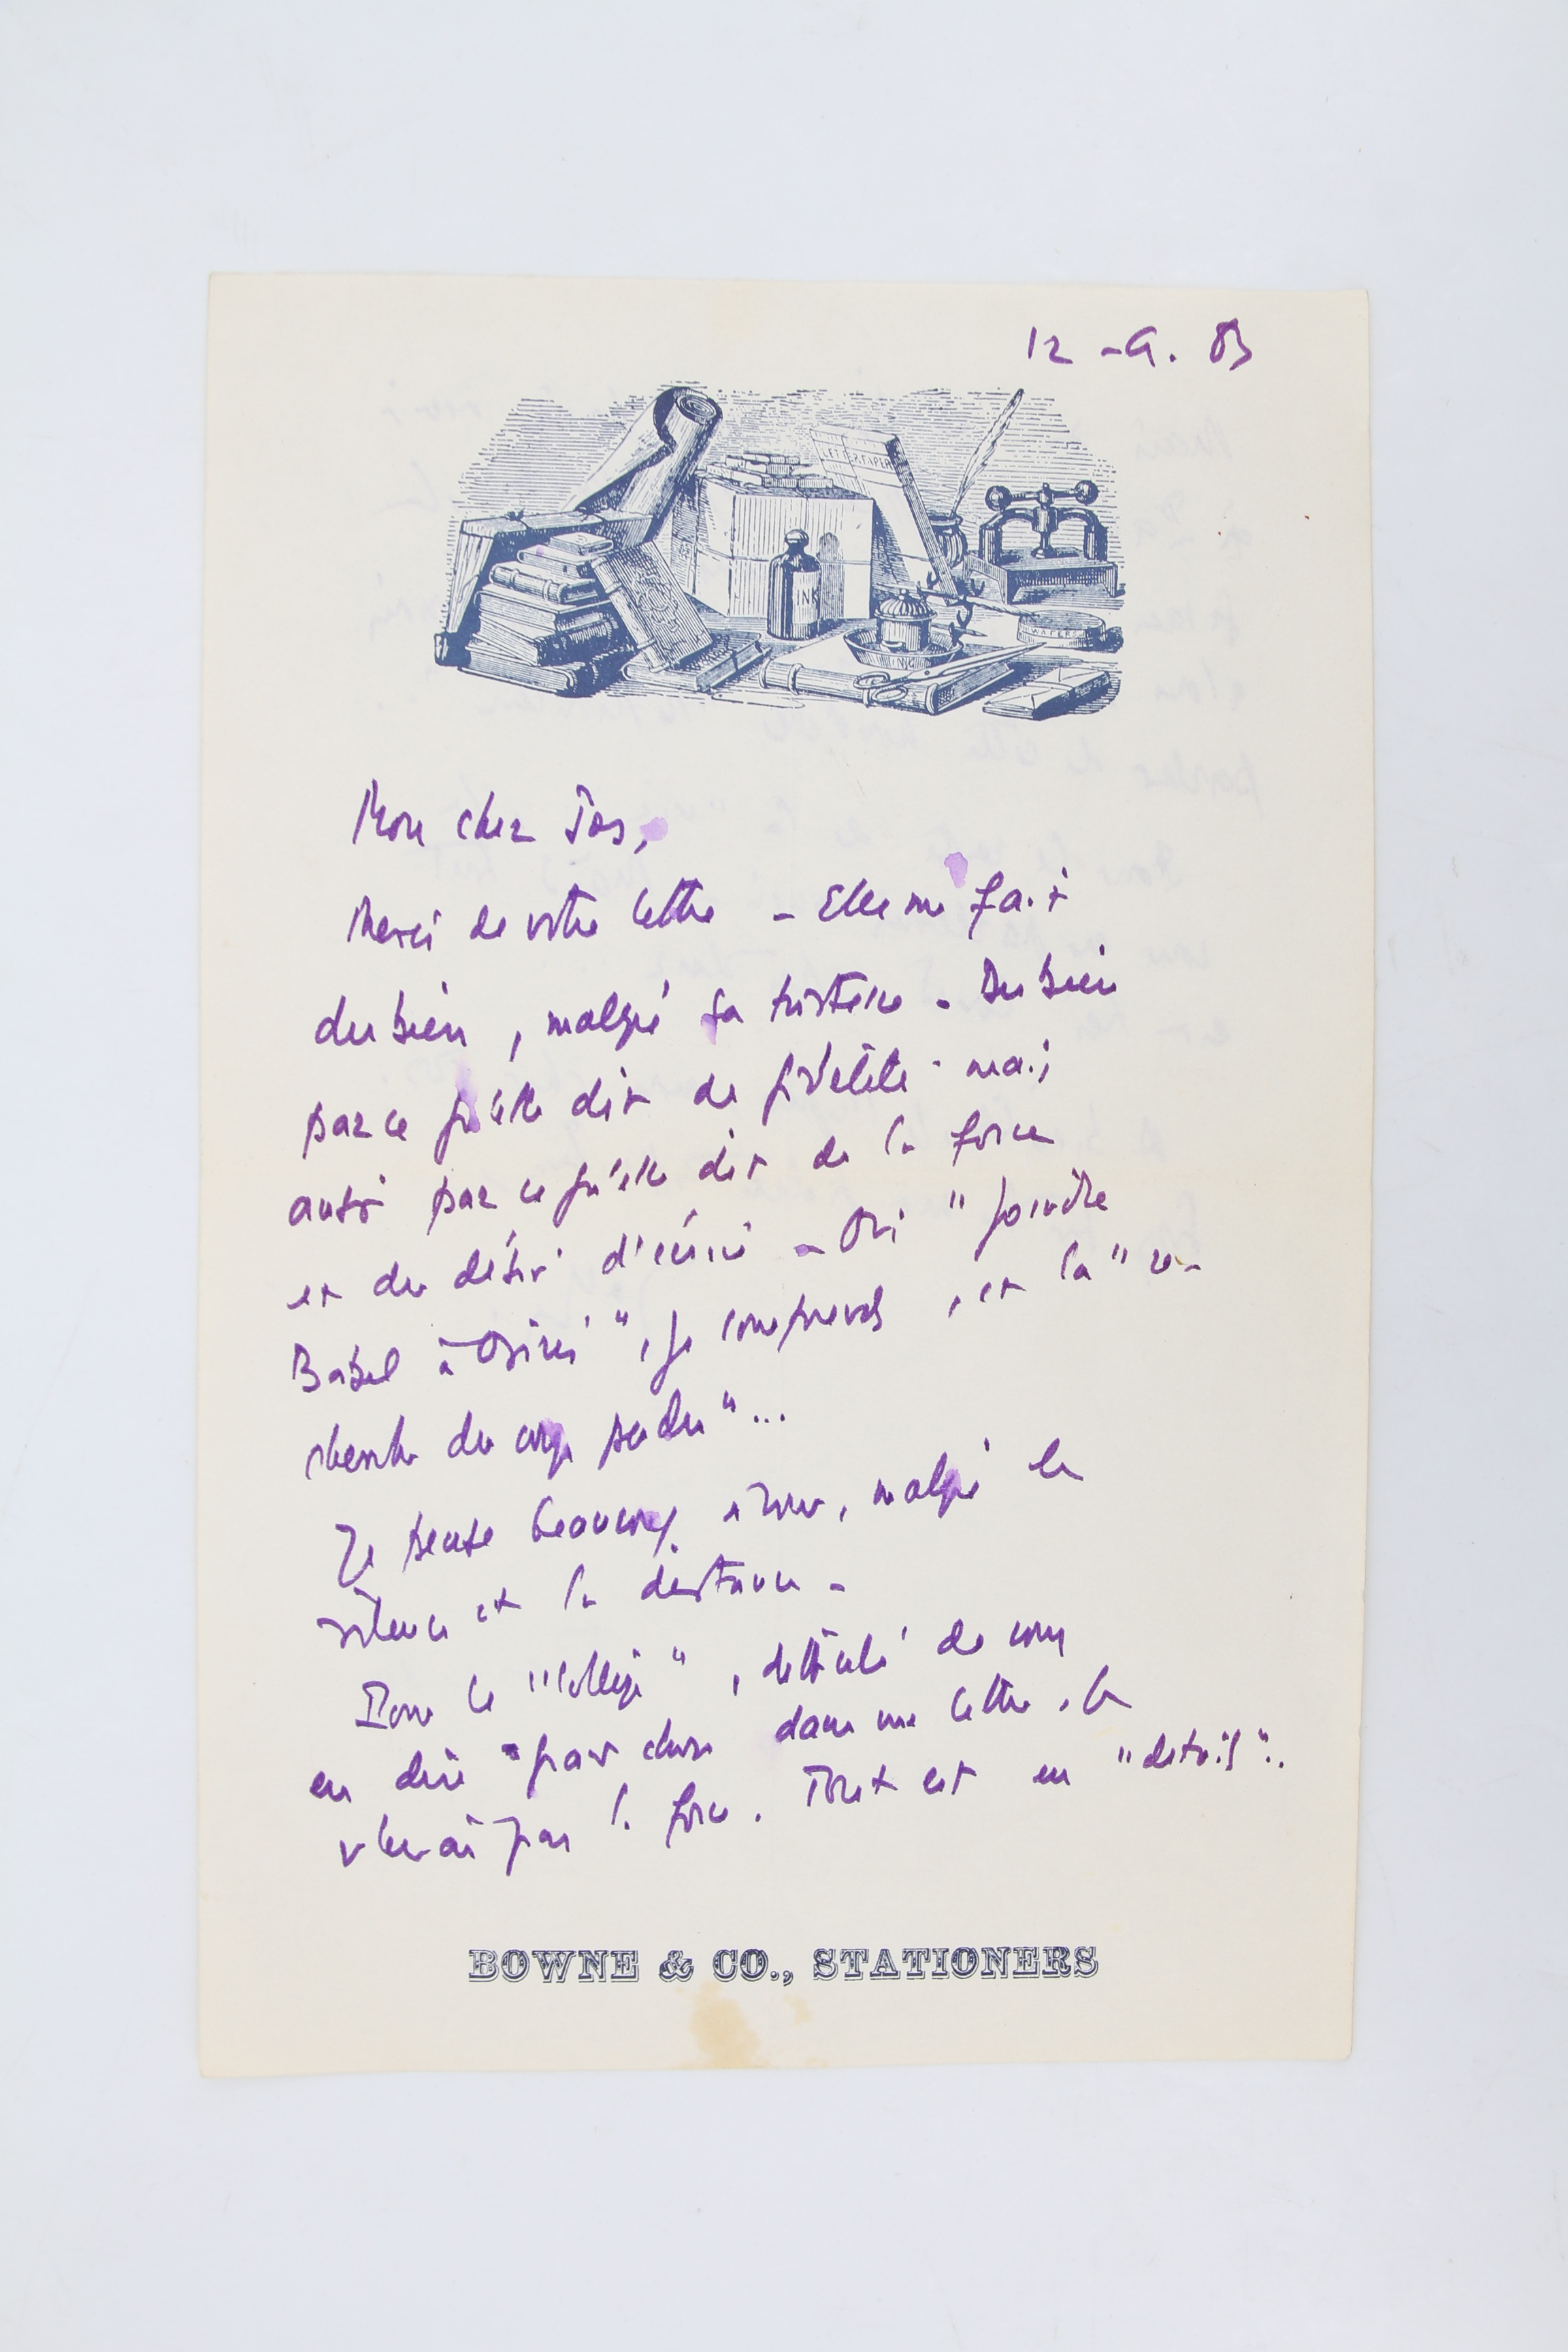 12 - 9. 83
LETTER PAPER
INK
WAFERS
INK
Mon cher Jos,
Merci de votre lettre - Elle me fait
du bien, malgré sa tristesse - Du bien
parce qu'elle dit de fidélité - mais
aussi parce qu'elle dit de la force
et du désir d'écrire - Oui " joindre
Babel à Osiris ", je comprends, et la " re-
cherche du corps perdu "...
Je pense beaucoup à vous, malgré le
silence et la distance -
Pour le " Collège ", difficile de vous
en dire quoi dans une lettre, je
n'en ai pas la force. Tout est en " détail ".
BOWNE & CO., STATIONERS